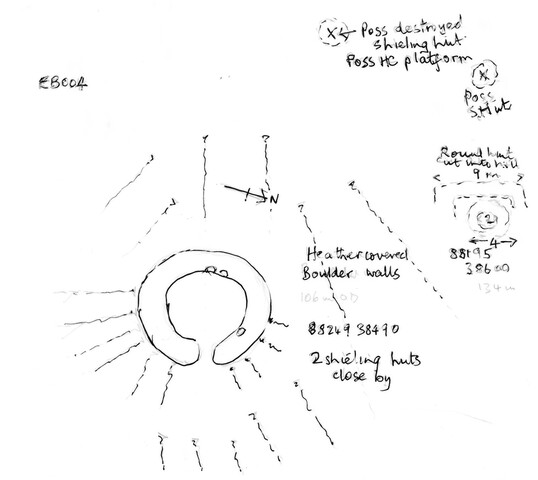 X ← Poss destroyed
shieling hut
Poss HC platform
EB004
X
Poss
S.Hut
Round hut
cut into hill
9 m
? ?
N
(2)
← 4 →
88195
38600
134m
Heather covered
Boulder walls
106m OD
88249 38490
2 shieling huts
close by